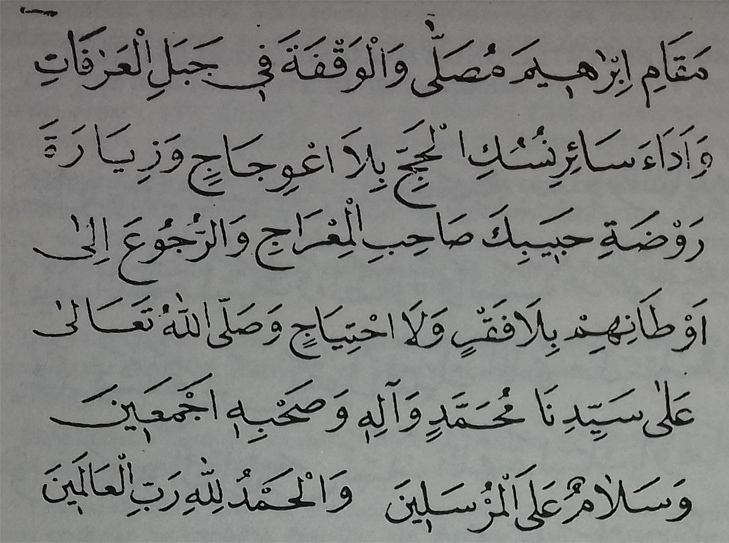 مَقَامِ اِبْرٰهٖيمَ مُصَلًّى وَالْوَقْفَةَ فٖي جَبَلِ الْعَرَفَاتِ
وَاَدَاءَ سَائِرِ نُسُكِ الْحَجِّ بِلَا اعْوِجَاجٍ وَزِيَارَةَ
رَوْضَةِ حَبٖيبِكَ صَاحِبِ الْمِعْرَاجِ وَالرُّجُوعَ اِلٰى
اَوْطَانِهِمْ بِلَا فَقْرٍ وَلَا احْتِيَاجٍ وَصَلَّى اللّٰهُ تَعَالٰى
عَلٰى سَيِّدِنَا مُحَمَّدٍ وَآلِهٖ وَصَحْبِهٖ اَجْمَعٖينَ
وَسَلَامٌ عَلَى الْمُرْسَلٖينَ وَالْحَمْدُ لِلّٰهِ رَبِّ الْعَالَمٖينَ